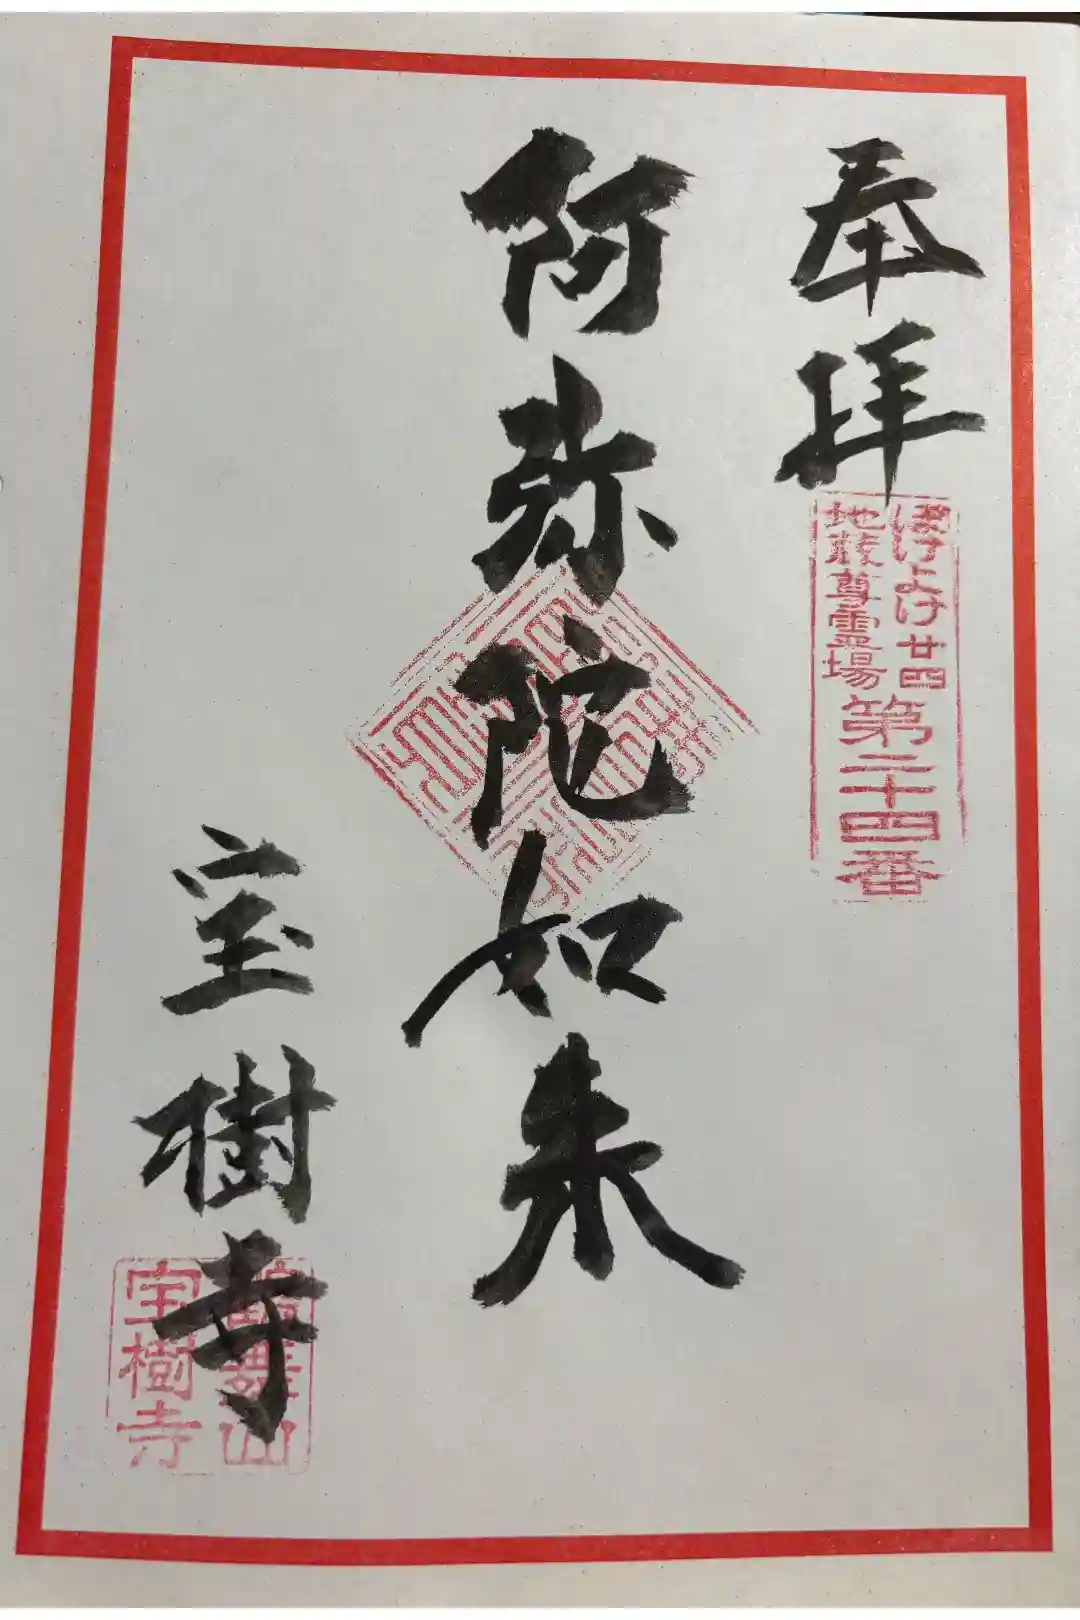 奉拝
ぼけよけ廿四
地蔵尊霊場
第二十四番
阿弥陀如来
宝樹寺
山
宝樹寺